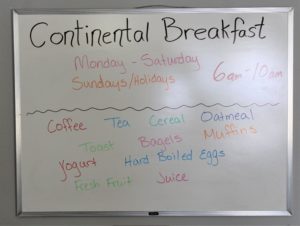 Continental Breakfast
Monday - Saturday
Sundays/Holidays
6am-10am
Coffee Tea Cereal Oatmeal
Toast Bagels Muffins
Yogurt Hard Boiled Eggs
Fresh Fruit Juice